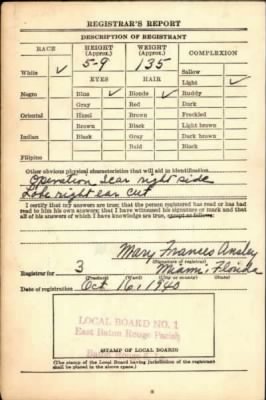 REGISTRAR'S REPORT
DESCRIPTION OF REGISTRANT
RACE HEIGHT (Approx.) WEIGHT (Approx.) COMPLEXION
5-9 135 Sallow
White ✓ EYES HAIR Light ✓
Negro Blue ✓ Blonde ✓ Ruddy
Gray Red Dark
Oriental Hazel Brown Freckled
Brown Black Light brown
Indian Black Gray Dark brown
Bald Black
Filipino
Other obvious physical characteristics that will aid in identification
Operation Scar right side
Lobe right ear cut
I certify that my answers are true; that the person registered has read or has had
read to him his own answers; that I have witnessed his signature or mark and that
all of his answers of which I have knowledge are true, except as follows:
Mary Frances Ansley
(Signature of registrar)
Registrar for 3 Miami, Florida
(Precinct) (Ward) (City or county) (State)
Date of registration Oct 16, 1940
LOCAL BOARD NO. 1
East Baton Rouge Parish
STAMP OF LOCAL BOARD
(The stamp of the Local Board having jurisdiction of the registrant
shall be placed in the above space.)